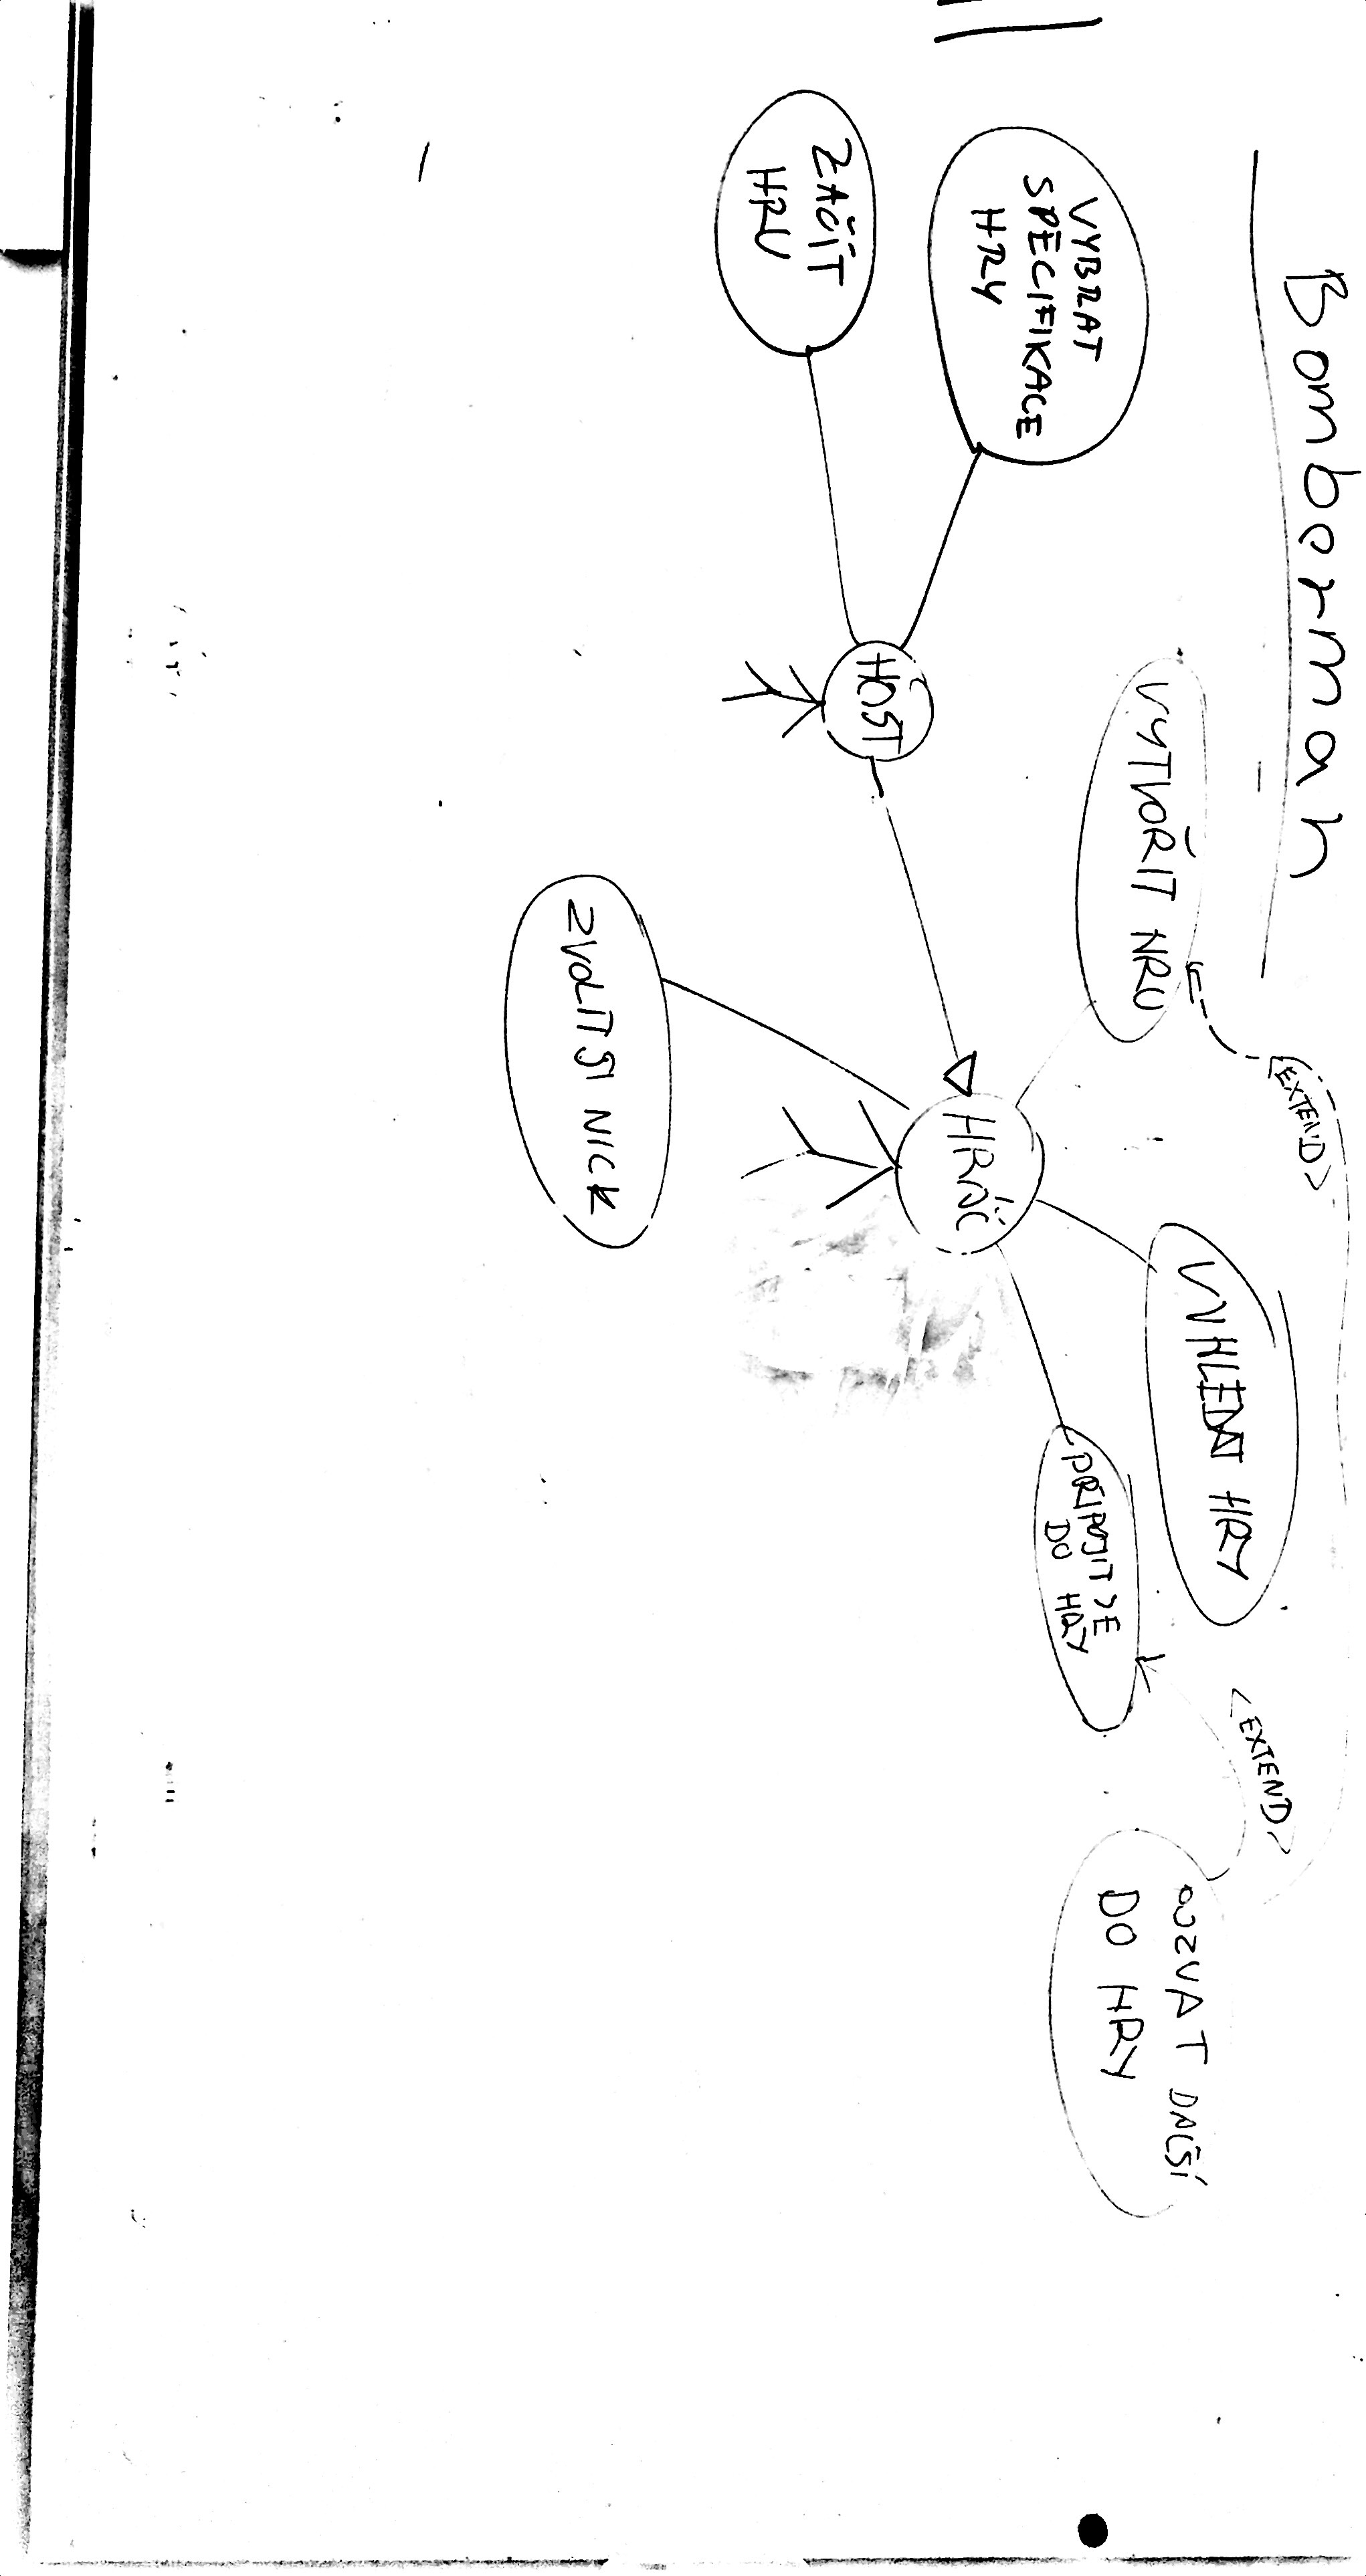 Bomberman
VYBRAT
SPECIFIKACE
HRY
ZAČÍT
HRU
HOST
VYTVOŘIT HRU
<EXTEND>
HRÁČ
ZVOLIT SI NICK
VYHLEDAT HRY
PŘIPOJIT SE
DO HRY
<EXTEND>
POZVAT DALŠÍ
DO HRY